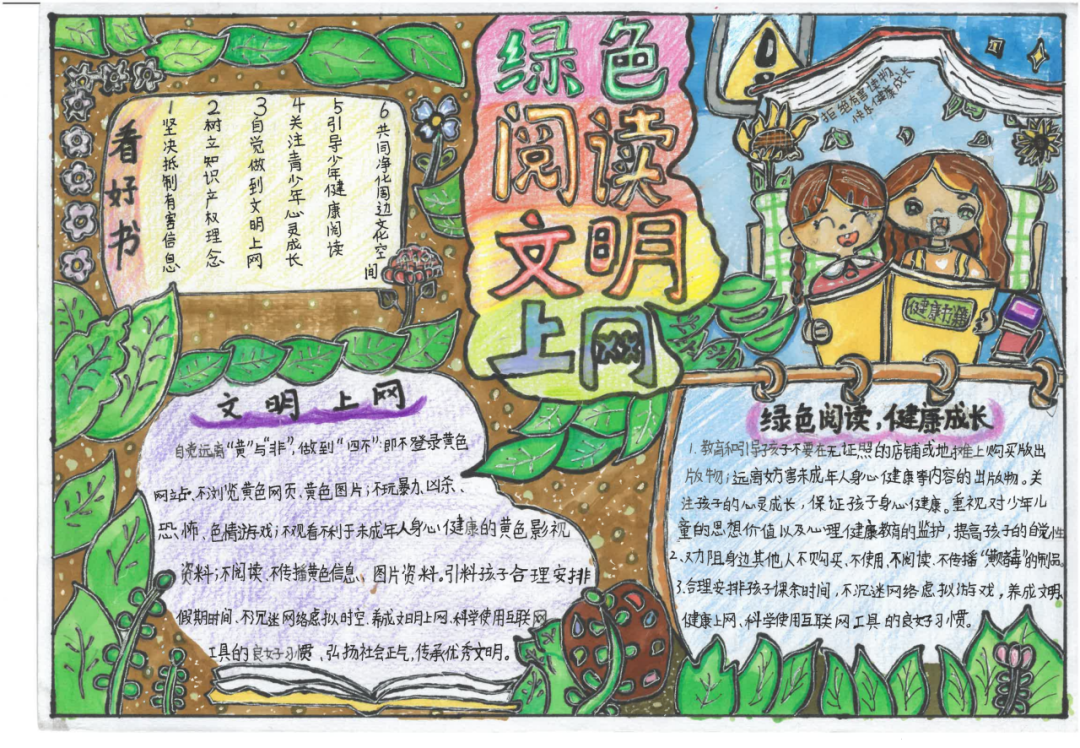 绿色
阅读
文明
上网
看好书
1坚决抵制有害信息
2树立知识产权理念
3自觉做到文明上网
4关注青少年心灵成长
5引导少年健康阅读
6共同净化周边文化空
间
拒绝有害读物
快乐健康成长
健康
文明上网
自觉远离“黄”与“非”,做到“四不”:即不登录黄色
网站、不浏览黄色网页、黄色图片;不玩暴力、凶杀、
恐怖、色情游戏;不观看不利于未成年人身心健康的黄色影视
资料;不阅读、不传播黄色信息、图片资料。引料孩子合理安排
假期时间、不沉迷网络虚拟时空、养成文明上网、科学使用互联网
工具的良好习惯、弘扬社会正气,传承优秀文明。
绿色阅读,健康成长
1.教育和引导孩子不要在无证照的店铺或地摊上购买出
版物;远离妨害未成年人身心健康等内容的出版物。关
注孩子的心灵成长,保证孩子身心健康。重视对少年儿
童的思想价值以及心理健康教育的监护,提高孩子的自觉性
2.劝阻身边其他人不购买、不使用、不阅读、不传播“”的制品
3.合理安排孩子课余时间,不沉迷网络虚拟游戏,养成文明、
健康上网、科学使用互联网工具的良好习惯。